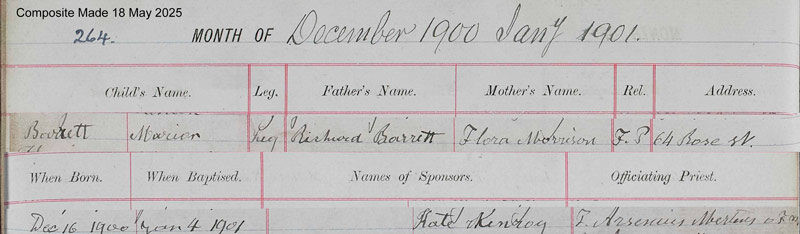 Composite Made 18 May 2025
264. MONTH OF December 1900 Jany 1901.
Child's Name. Leg. Father's Name. Mother's Name. Rel. Address.
Barrett Marion Leg Richard Barrett Flora Morrison F. P 64 Rose St.
When Born. When Baptised. Names of Sponsors. Officiating Priest.
Dec 16 1900 Jan 4 1901 Kate F. Arsenius Mertens O.F.M.